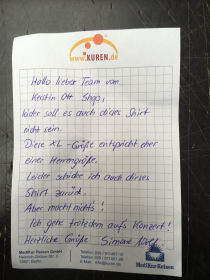 www.KUREN.de
Hallo lieber Team von
Kerstin Ott Shop,
leider soll es auch dieses Shirt
nicht sein.
Diese XL-Größe entspricht eher
einer Herrengröße.
Leider schicke ich auch dieses
Shirt zurück.
Aber macht nichts!
Ich gehe trotzdem aufs Konzert!
Herzliche Grüße Simone
MediKur Reisen GmbH
MediKur-Reisen